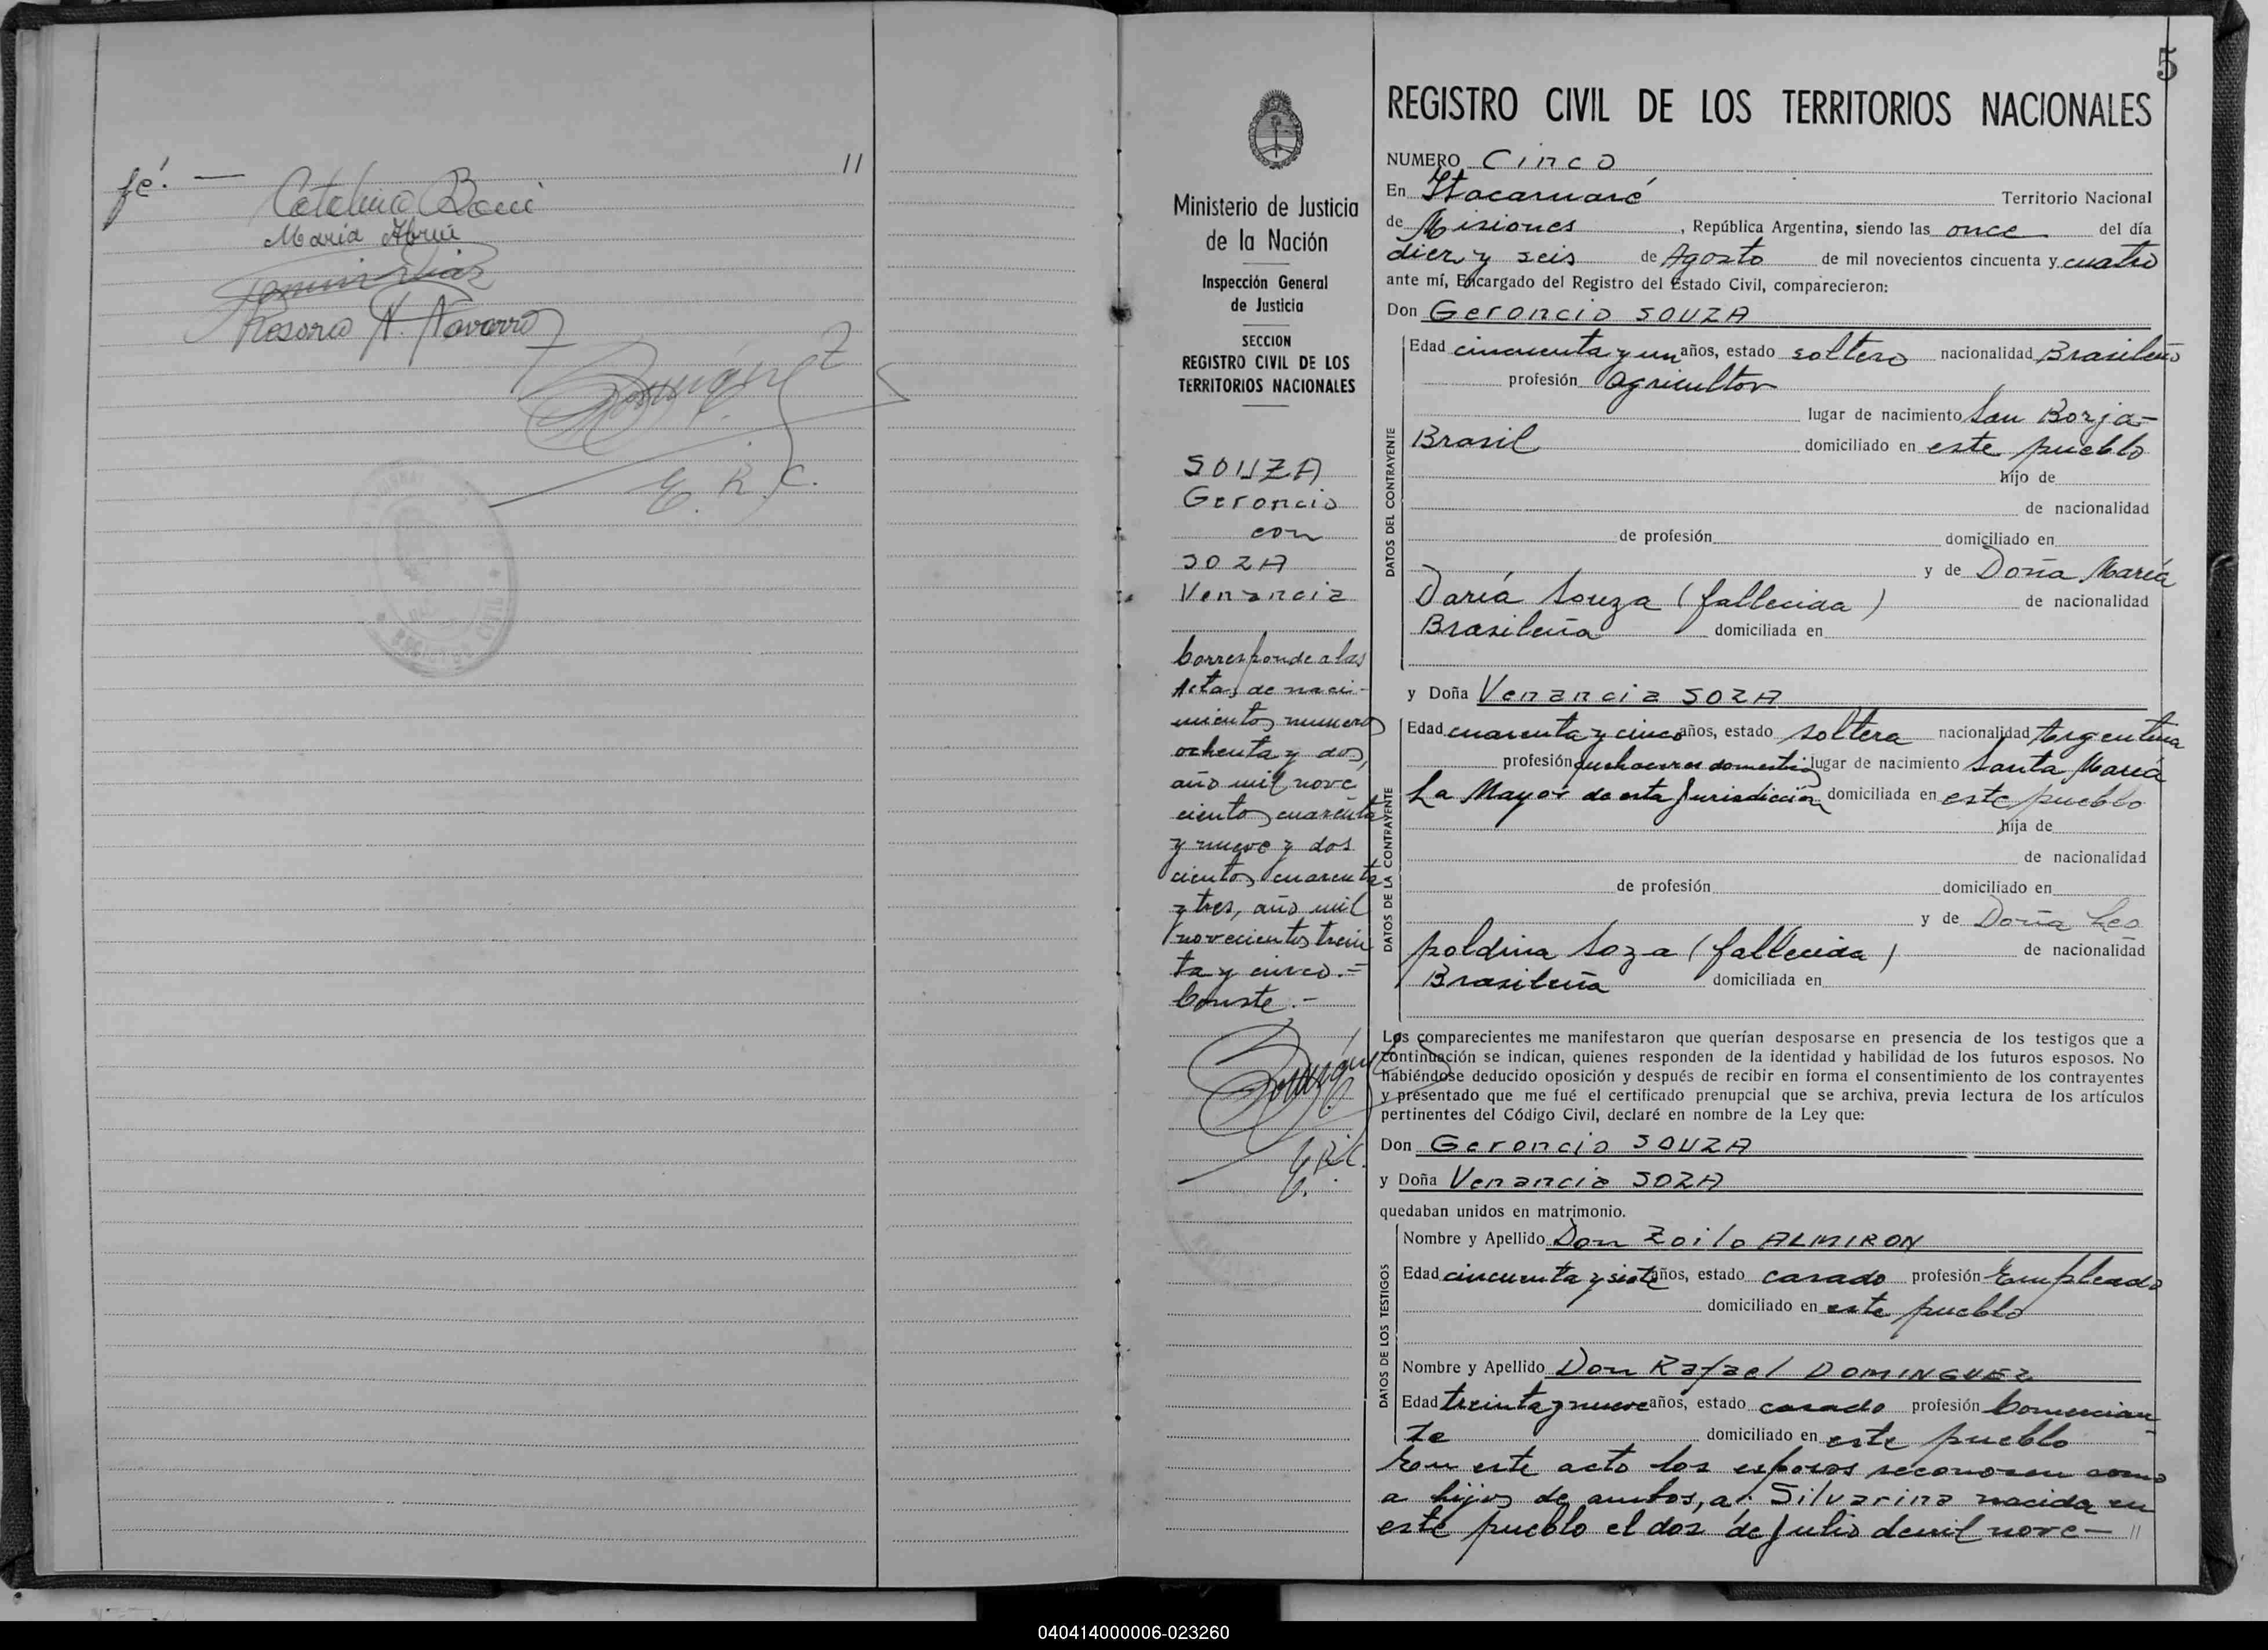 11
fé. —
Catalina
María Abreu
Fermin Diaz
Rosario N. Navarro
E. R. C.
5
REGISTRO CIVIL DE LOS TERRITORIOS NACIONALES
Ministerio de Justicia
de la Nación
Inspección General
de Justicia
SECCION
REGISTRO CIVIL DE LOS
TERRITORIOS NACIONALES
SOUZA
Geroncio
con
SOZA
Venancia
Corresponde a las
Actas de naci-
mientos numeros
ochenta y dos,
año mil nove
cientos cuarenta
y nueve y dos
cientos cuarenta
y tres, año mil
novecientos trein
ta y cinco.=
Conste.-
E.R.C.
NUMERO Cinco
En Itacaruaré Territorio Nacional
de Misiones, República Argentina, siendo las once del día
diez y seis de Agosto de mil novecientos cincuenta y cuatro
ante mí, Encargado del Registro del Estado Civil, comparecieron:
Don Geroncio SOUZA
DATOS DEL CONTRAYENTE
Edad cincuenta y un años, estado soltero nacionalidad Brasileño
profesión Agricultor
lugar de nacimiento San Borja-
Brasil domiciliado en este pueblo
hijo de
de nacionalidad
de profesión domiciliado en
y de Doña María
Daría Souza (fallecida) de nacionalidad
Brasileña domiciliada en
y Doña Venancia SOZA
DATOS DE LA CONTRAYENTE
Edad cuarenta y cinco años, estado soltera nacionalidad Argentina
profesión quehaceres domesticos lugar de nacimiento Santa María
La Mayor de esta Jurisdicción domiciliada en este pueblo
hija de
de nacionalidad
de profesión domiciliado en
y de Doña Leo
poldina Soza (fallecida) de nacionalidad
Brasileña domiciliada en
Los comparecientes me manifestaron que querían desposarse en presencia de los testigos que a
continuación se indican, quienes responden de la identidad y habilidad de los futuros esposos. No
habiéndose deducido oposición y después de recibir en forma el consentimiento de los contrayentes
y presentado que me fué el certificado prenupcial que se archiva, previa lectura de los artículos
pertinentes del Código Civil, declaré en nombre de la Ley que:
Don Geroncio SOUZA
y Doña Venancia SOZA
quedaban unidos en matrimonio.
DATOS DE LOS TESTIGOS
Nombre y Apellido Don Zoilo ALMIRON
Edad cincuenta y siete años, estado casado profesión Empleado
domiciliado en este pueblo
Nombre y Apellido Don Rafael DOMINGUEZ
Edad treinta y nueve años, estado casado profesión Comercian-
te domiciliado en este pueblo
En este acto los esposos reconocen como
a hijos de ambos, a: Silvarina nacida en
este pueblo el dos de Julio de mil nove- //
040414000006-023260